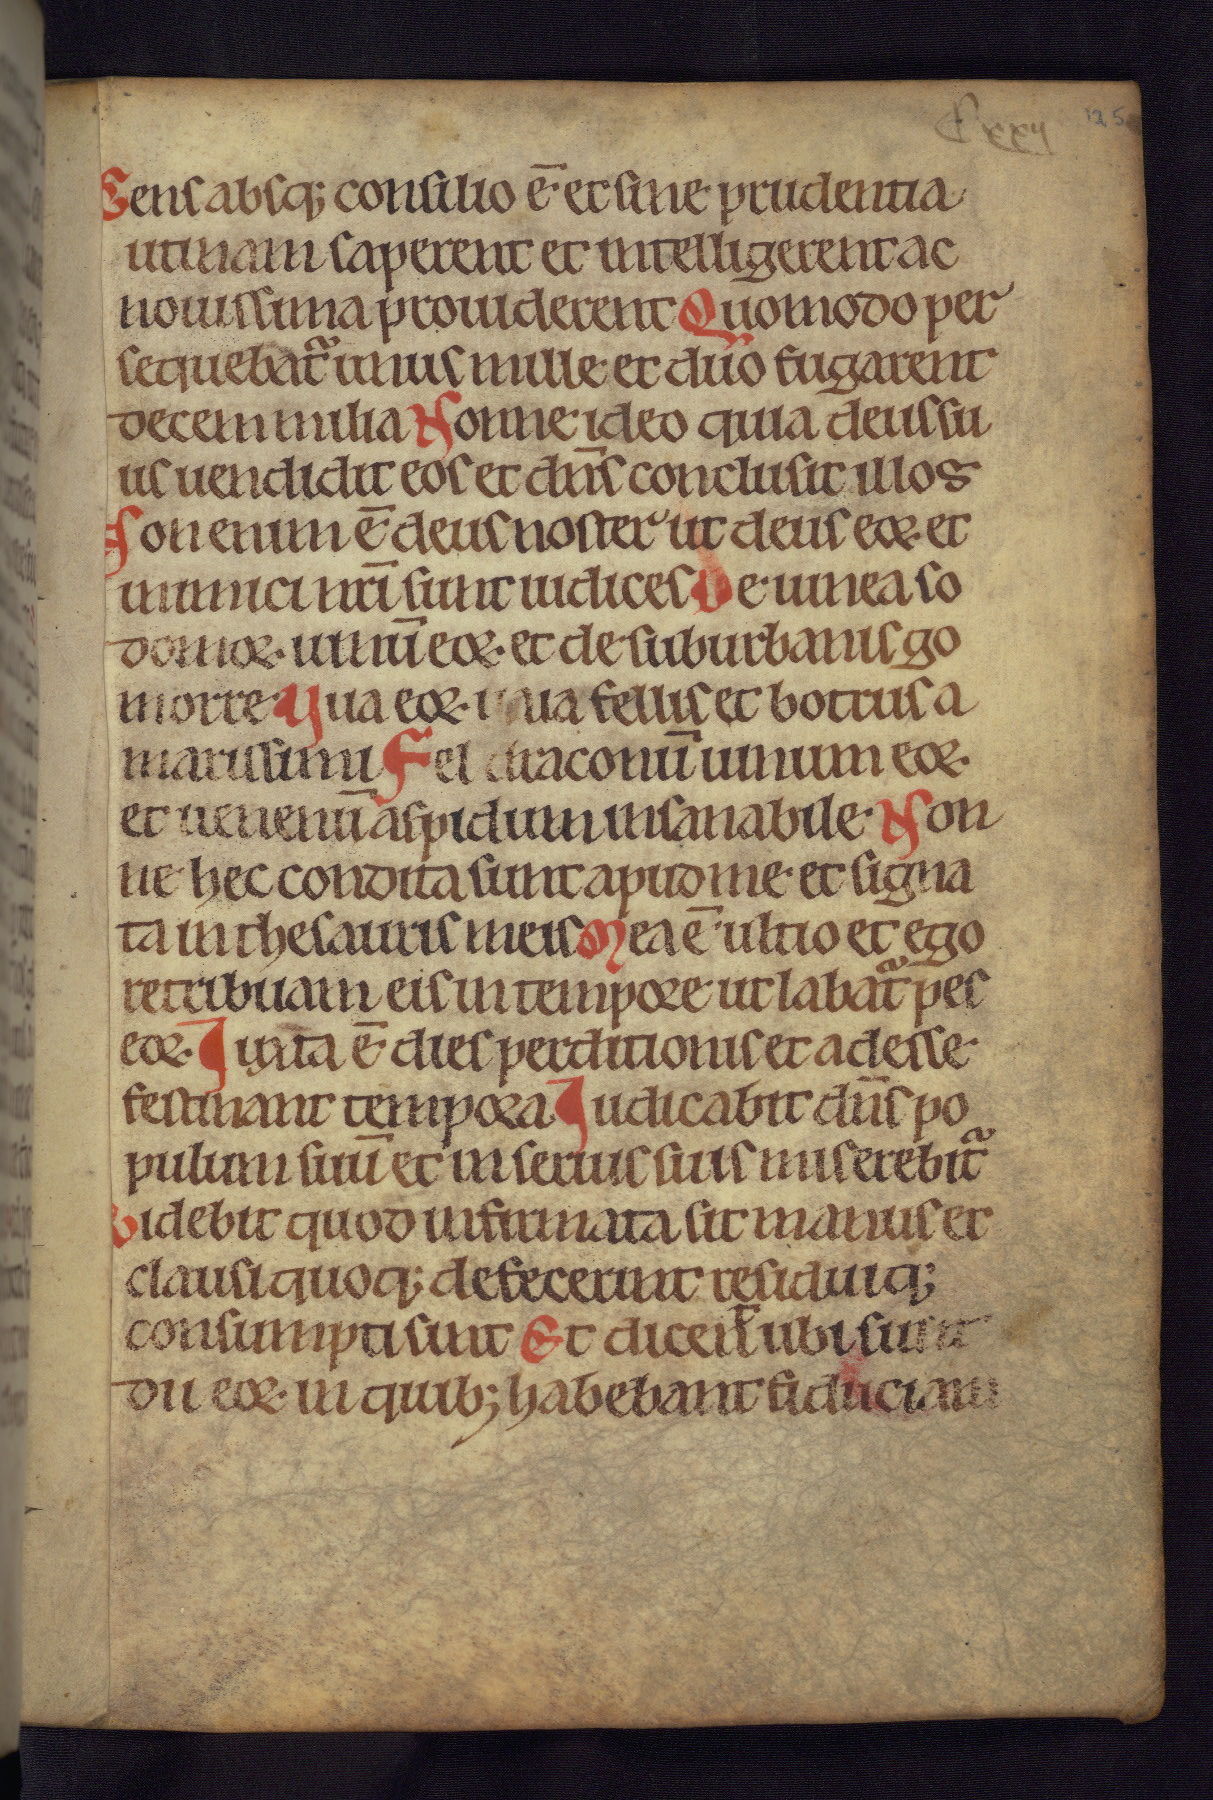 Cxxv 125
Gens absq; consilio ē· et sine prudentia
utinam saperent et intelligerent ac
nouissima prouiderent Quomodo per
sequebat᷑ unus mille· et duo fugarent
decem milia Nonne ideo quia deus su
us uendidit eos et dn̄s conclusit illos
Non enim ē deus noster ut deus eoꝝ· et
inimici nr̄i sunt iudices De uinea so
domoꝝ· uinū eoꝝ· et de suburbanis go
morre· Uua eoꝝ· uua fellis et botrus a
marissimi Fel draconū uinum eoꝝ·
et uenenū aspidum insanabile· Non
ne hec condita sunt apud me· et signa
ta in thesauris meis Mea ē· ultio et ego
retribuam eis in tempore· ut labat᷑ pes
eoꝝ· Iuxta ē· dies perditionis et adesse·
festinant tempora Iudicabit dn̄s po
pulum suū et in seruis suis miserebit᷑
Videbit quod infirmata sit manus et
clausi quoq; defecerunt residuiq;
consumpti sunt Et dicen̄t ubi sunt
dii eoꝝ· in quib; habebant fiduciam